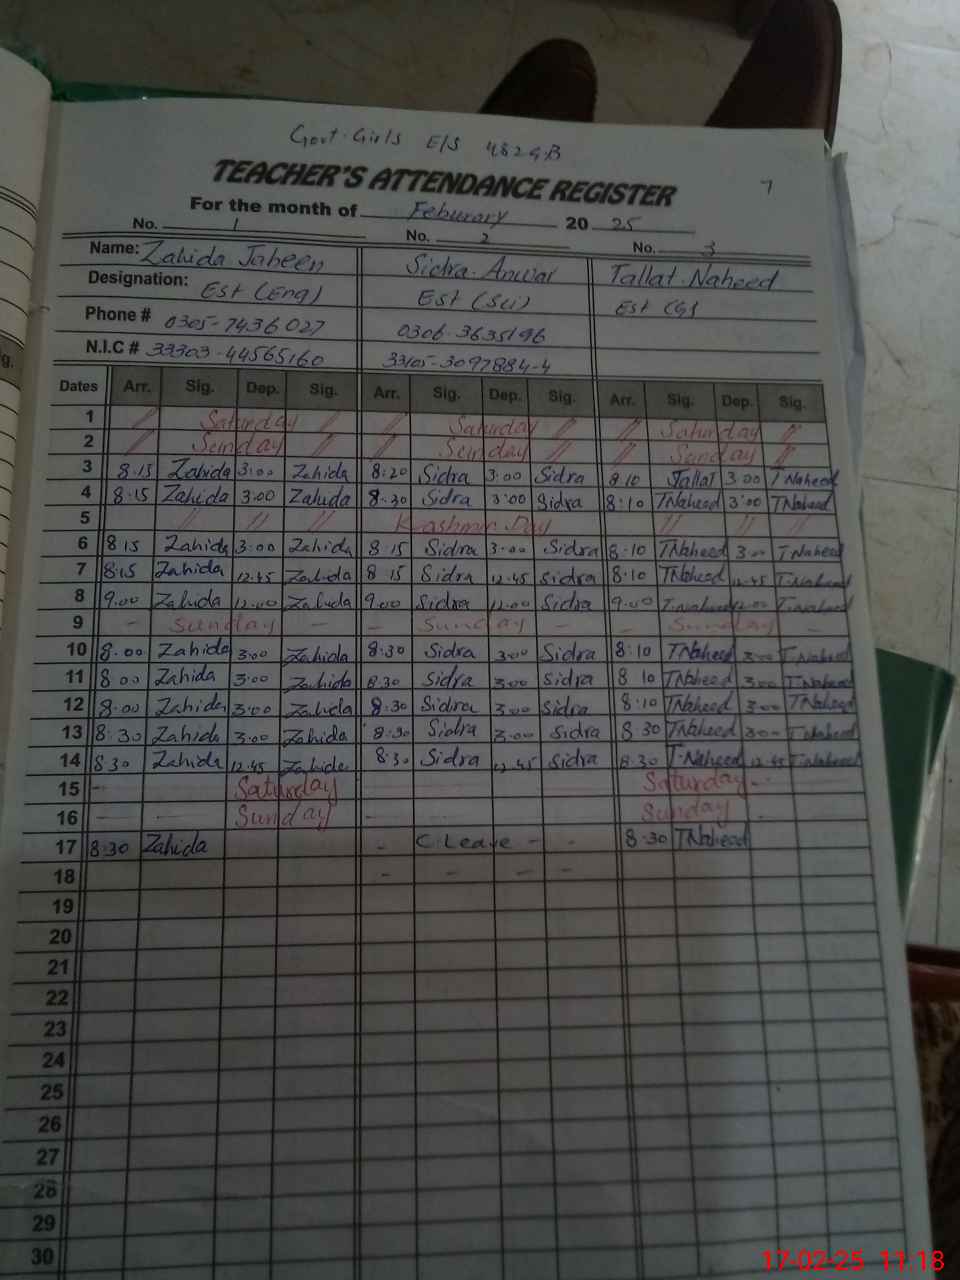 Govt. Girls E/S 482 G.B
TEACHER'S ATTENDANCE REGISTER 7
For the month of Feburary 20 25
No. 1 No. 2 No. 3
Name: Zahida Jabeen Sidra Anwar Tallat Naheed
Designation: Est (Eng) Est (Sci) Est (G)
Phone # 0305-7436027 0306-3635196
N.I.C # 33303-44565160 33105-3097884-4
Dates Arr. Sig. Dep. Sig. Arr. Sig. Dep. Sig. Arr. Sig. Dep. Sig.
1 // Saturday // // Saturday // // Saturday //
2 // Sunday // // Sunday // // Sunday //
3 8:15 Zahida 3:00 Zahida 8:20 Sidra 3:00 Sidra 8:10 Tallat 3:00 TNaheed
4 8:15 Zahida 3:00 Zahida 8:30 Sidra 3:00 Sidra 8:10 TNaheed 3:00 TNaheed
5 // // // Kashmir Day // // //
6 8:15 Zahida 3:00 Zahida 8:15 Sidra 3:00 Sidra 8:10 TNaheed 3:00 T.Naheed
7 8:15 Zahida 12:45 Zahida 8:15 Sidra 12:45 Sidra 8:10 TNaheed 12:45 T.Naheed
8 9:00 Zahida 12:00 Zahida 9:00 Sidra 12:00 Sidra 9:00 T.Naheed 12:00 T.Naheed
9 - Sunday - - Sunday - - Sunday -
10 8:00 Zahida 3:00 Zahida 8:30 Sidra 3:00 Sidra 8:10 TNaheed 3:00 T.Naheed
11 8:00 Zahida 3:00 Zahida 8:30 Sidra 3:00 Sidra 8:10 TNaheed 3:00 TNaheed
12 8:00 Zahida 3:00 Zahida 8:30 Sidra 3:00 Sidra 8:10 TNaheed 3:00 TNaheed
13 8:30 Zahida 3:00 Zahida 8:30 Sidra 3:00 Sidra 8:30 TNaheed 3:00 TNaheed
14 8:30 Zahida 12:45 Zahida 8:30 Sidra 12:45 Sidra 8:30 T.Naheed 12:45 T.Naheed
15 - Saturday Saturday -
16 Sunday - Sunday
17 8:30 Zahida - C.Leave - - 8:30 TNaheed
18 - - - -
19
20
21
22
23
24
25
26
27
28
29
30
17-02-25 11:18